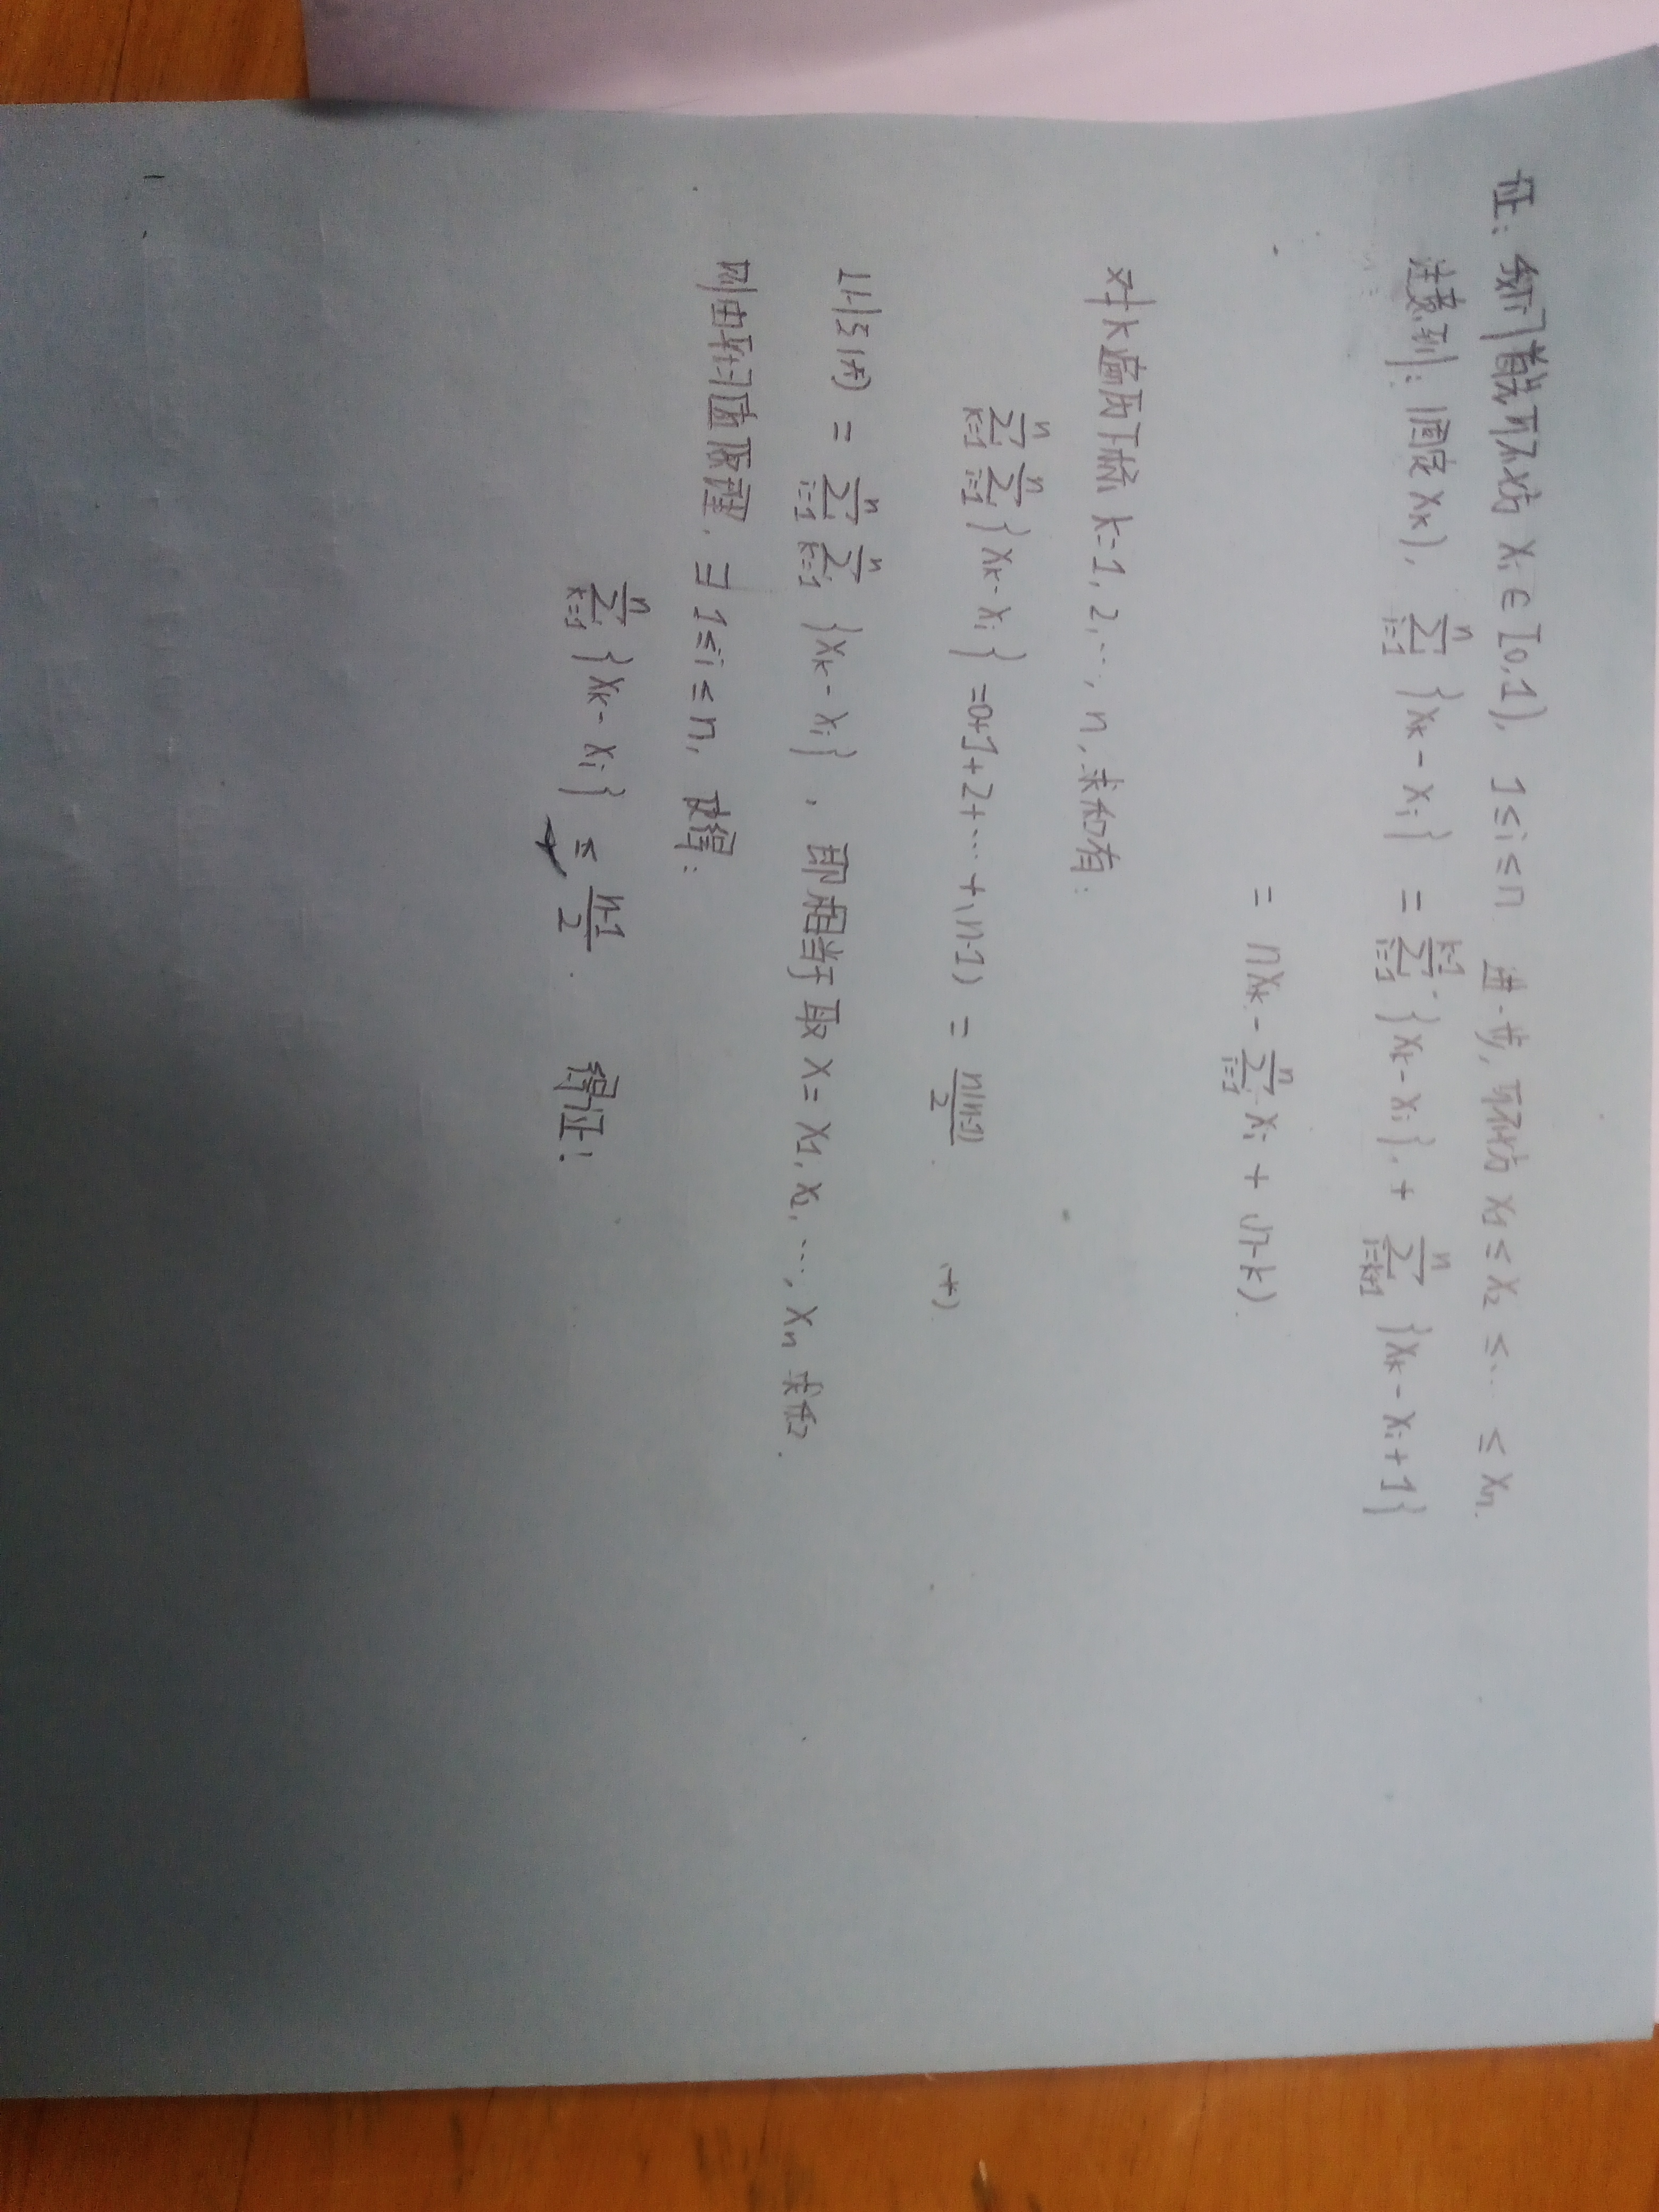 证: 我们首先可不妨 x_i ∈ [0,1), 1≤i≤n 进一步, 可不妨 x_1 ≤ x_2 ≤ … ≤ x_n.
注意到: (固定 x_k), \sum_{i=1}^{n} {x_k - x_i} = \sum_{i=1}^{k-1} {x_k - x_i} + \sum_{i=k+1}^{n} {x_k - x_i + 1}
= n x_k - \sum_{i=1}^{n} x_i + (n-k).
对 k 遍历下标 k=1, 2, …, n, 求和有:
\sum_{k=1}^{n} \sum_{i=1}^{n} {x_k - x_i} = 0+1+2+…+(n-1) = \frac{n(n-1)}{2}. (*)
(*) = \sum_{i=1}^{n} \sum_{k=1}^{n} {x_k - x_i}, 即相当于取 x = x_1, x_2, …, x_n 求和.
则由平均值原理, ∃ 1≤i≤n, 使得:
\sum_{k=1}^{n} {x_k - x_i} ≤ \frac{n-1}{2}. 得证!